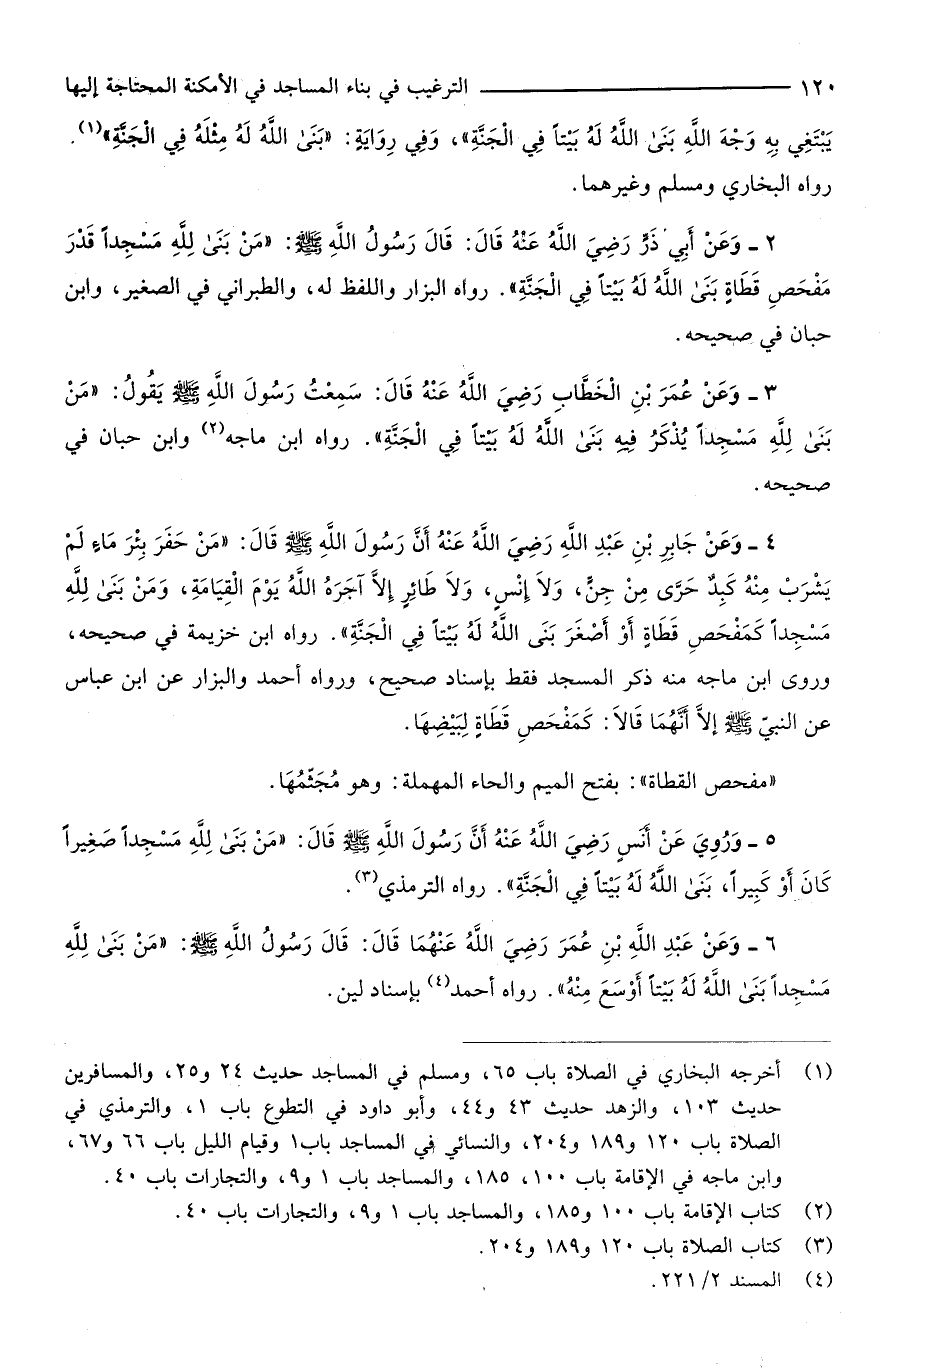 ١٢٠ ـــــــــــــــــــ الترغيب في بناء المساجد في الأمكنة المحتاجة إليها
يَبْتَغِي بِهِ وَجْهَ اللَّهِ بَنَىٰ اللَّهُ لَهُ بَيْتاً فِي الْجَنَّةِ»، وَفِي رِوَايَةٍ: «بَنَىٰ اللَّهُ لَهُ مِثْلَهُ فِي الْجَنَّةِ»(١).
رواه البخاري ومسلم وغيرهما.
٢ ـ وَعَنْ أَبِي ذَرٍّ رَضِيَ اللَّهُ عَنْهُ قَالَ: قَالَ رَسُولُ اللَّهِ ﷺ: «مَنْ بَنَىٰ لِلَّهِ مَسْجِداً قَدْرَ
مَفْحَصِ قَطَاةٍ بَنَىٰ اللَّهُ لَهُ بَيْتاً فِي الْجَنَّةِ». رواه البزار واللفظ له، والطبراني في الصغير، وابن
حبان في صحيحه.
٣ ـ وَعَنْ عُمَرَ بْنِ الْخَطَّابِ رَضِيَ اللَّهُ عَنْهُ قَالَ: سَمِعْتُ رَسُولَ اللَّهِ ﷺ يَقُولُ: «مَنْ
بَنَىٰ لِلَّهِ مَسْجِداً يُذْكَرُ فِيهِ بَنَىٰ اللَّهُ لَهُ بَيْتاً فِي الْجَنَّةِ». رواه ابن ماجه(٢) وابن حبان في
صحيحه.
٤ ـ وَعَنْ جَابِرِ بْنِ عَبْدِ اللَّهِ رَضِيَ اللَّهُ عَنْهُ أَنَّ رَسُولَ اللَّهِ ﷺ قَالَ: «مَنْ حَفَرَ بِئْرَ مَاءٍ لَمْ
يَشْرَبْ مِنْهُ كَبِدٌ حَرَّى مِنْ جِنٍّ، وَلاَ إِنْسٍ، وَلاَ طَائِرٍ إِلاَّ آجَرَهُ اللَّهُ يَوْمَ الْقِيَامَةِ، وَمَنْ بَنَىٰ لِلَّهِ
مَسْجِداً كَمَفْحَصِ قَطَاةٍ أَوْ أَصْغَرَ بَنَى اللَّهُ لَهُ بَيْتاً فِي الْجَنَّةِ». رواه ابن خزيمة في صحيحه،
وروى ابن ماجه منه ذكر المسجد فقط بإسناد صحيح، ورواه أحمد والبزار عن ابن عباس
عن النبيّ ﷺ إلاَّ أَنَّهُمَا قَالاَ: كَمَفْحَصِ قَطَاةٍ لِبَيْضِهَا.
«مفحص القطاة»: بفتح الميم والحاء المهملة: وهو مُجَثّمُهَا.
٥ ـ وَرُوِيَ عَنْ أَنَسٍ رَضِيَ اللَّهُ عَنْهُ أَنَّ رَسُولَ اللَّهِ ﷺ قَالَ: «مَنْ بَنَىٰ لِلَّهِ مَسْجِداً صَغِيراً
كَانَ أَوْ كَبِيراً، بَنَىٰ اللَّهُ لَهُ بَيْتاً فِي الْجَنَّةِ». رواه الترمذي(٣).
٦ ـ وَعَنْ عَبْدِ اللَّهِ بْنِ عُمَرَ رَضِيَ اللَّهُ عَنْهُمَا قَالَ: قَالَ رَسُولُ اللَّهِ ﷺ: «مَنْ بَنَىٰ لِلَّهِ
مَسْجِداً بَنَىٰ اللَّهُ لَهُ بَيْتاً أَوْسَعَ مِنْهُ». رواه أحمد(٤) بإسناد لين.
(١) أخرجه البخاري في الصلاة باب ٦٥، ومسلم في المساجد حديث ٢٤ و٢٥، والمسافرين
حديث ١٠٣، والزهد حديث ٤٣ و٤٤، وأبو داود في التطوع باب ١، والترمذي في
الصلاة باب ١٢٠ و١٨٩ و٢٠٤، والنسائي في المساجد باب١ وقيام الليل باب ٦٦ و٦٧،
وابن ماجه في الإقامة باب ١٠٠، ١٨٥، والمساجد باب ١ و٩، والتجارات باب ٤٠.
(٢) كتاب الإقامة باب ١٠٠ و١٨٥، والمساجد باب ١ و٩، والتجارات باب ٤٠.
(٣) كتاب الصلاة باب ١٢٠ و١٨٩ و٢٠٤.
(٤) المسند ٢/ ٢٢١.